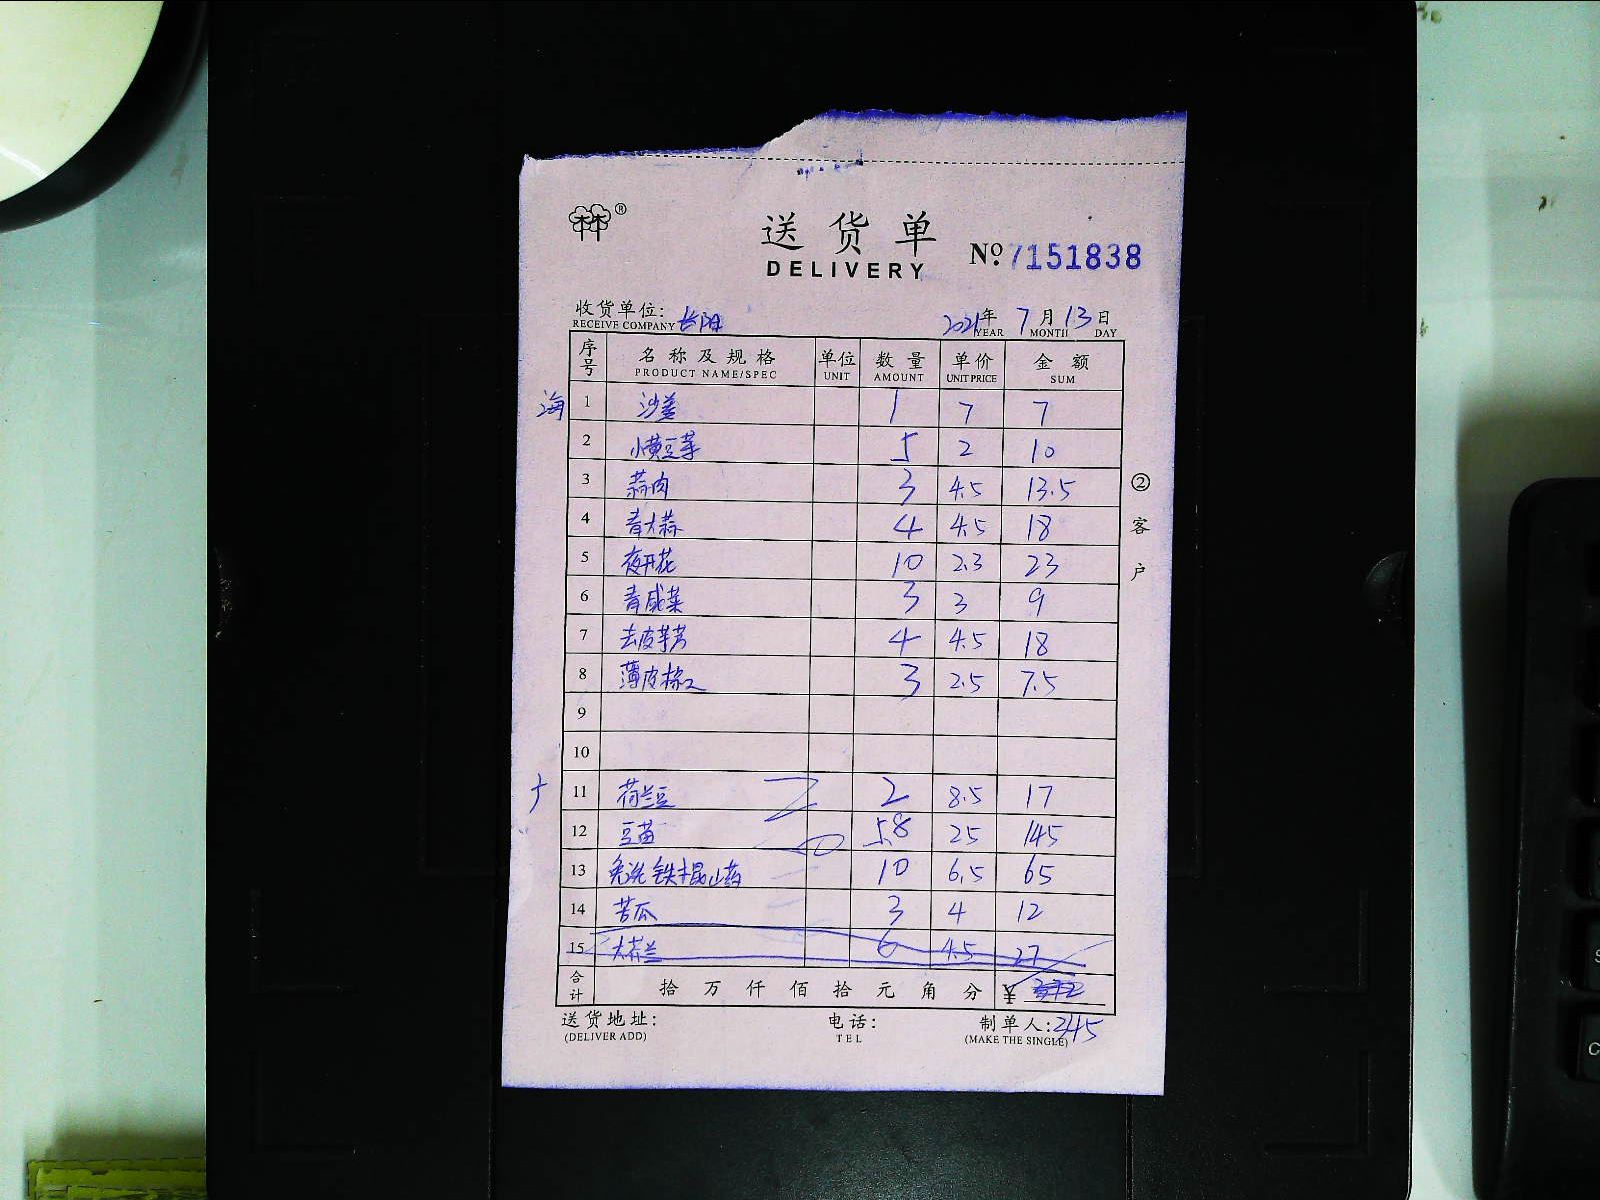 林®
送货单
DELIVERY
№ 7151838
收货单位: 长阳
RECEIVE COMPANY
2021年 7月 13日
YEAR MONTH DAY
序号 名称及规格 单位 数量 单价 金额
PRODUCT NAME/SPEC UNIT AMOUNT UNIT PRICE SUM
海 1 沙姜 1 7 7
2 小黄豆芽 5 2 10
3 蒜肉 3 4.5 13.5
4 青大蒜 4 4.5 18
5 夜开花 10 2.3 23
6 青咸菜 3 3 9
7 去皮芋艿 4 4.5 18
8 薄皮椒 3 2.5 7.5
9
10
11 荷兰豆 2 8.5 17
12 豆苗 5.8 25 145
13 免洗铁棍山药 10 6.5 65
14 苦瓜 3 4 12
15 大芥兰 6 4.5 27
合计 拾万仟佰拾元角分 ¥
送货地址: 电话: 制单人: 345
(DELIVER ADD) TEL (MAKE THE SINGLE)
②客户